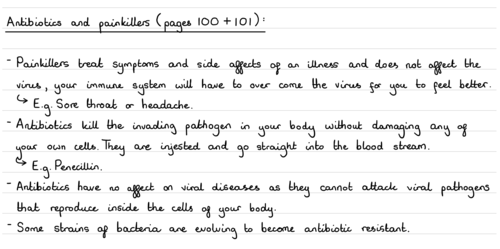 Antibiotics and painkillers (pages 100 + 101):
- Painkillers treat symptoms and side affects of an illness and does not affect the
virus, your immune system will have to over come the virus for you to feel better.
↳ E.g. Sore throat or headache.
- Antibiotics kill the invading pathogen in your body without damaging any of
your own cells. They are injested and go straight into the blood stream.
↳ E.g. Penecillin.
- Antibiotics have no affect on viral diseases as they cannot attack viral pathogens
that reproduce inside the cells of your body.
- Some strains of bacteria are evolving to become antibiotic resistant.